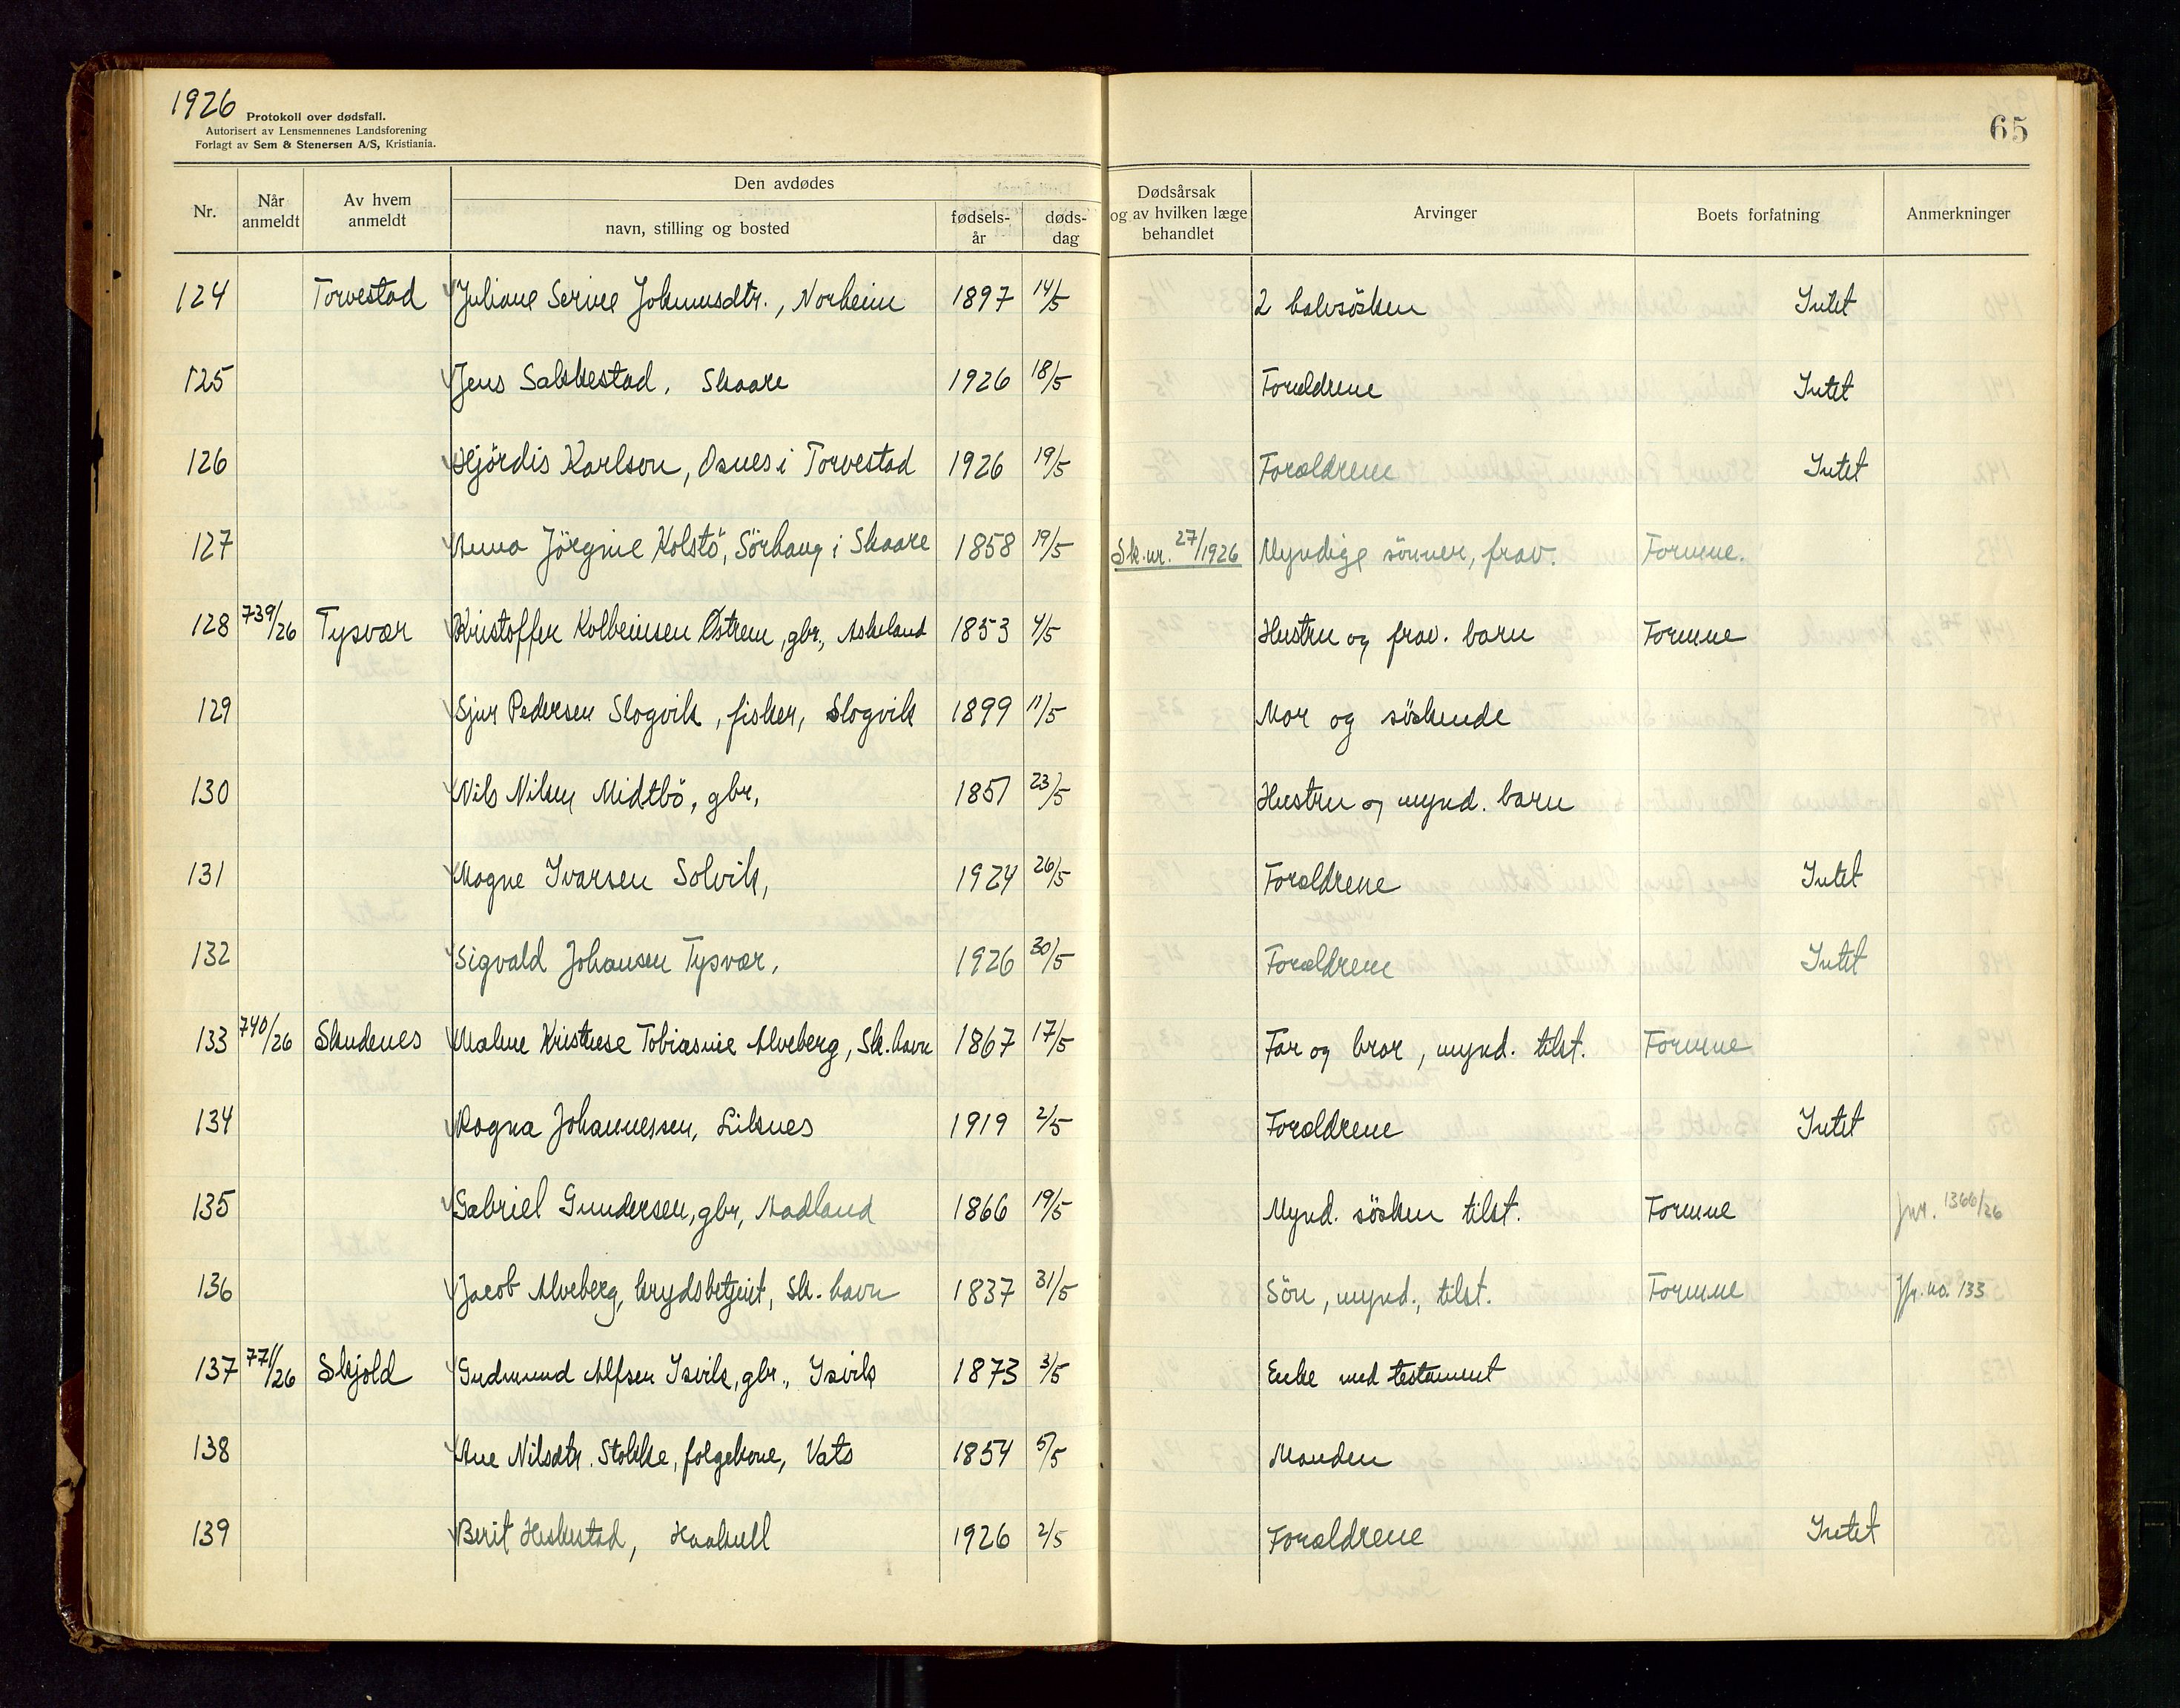 1926
Protokoll over dødsfall.
Autorisert av Lensmennenes Landsforening
Forlagt av Sem & Stenersen A/S, Kristiania.
65
Nr. Når anmeldt Av hvem anmeldt Den avdødes navn, stilling og bosted fødsels-år døds-dag Dødsårsak og av hvilken læge behandlet Arvinger Boets forfatning Anmerkninger
124 Torvestad Juliane Serine Johannesdtr., Norheim 1897 14/5 2 halvsösken Intet
125 Jens Sakkestad, Skaare 1926 18/5 Foreldrene Intet
126 Hjördis Karlson, Osnes i Torvestad 1926 19/5 Forældrene Intet
127 Anna Jörgine Kolstö, Sörhaug i Skaare 1858 19/5 Sk.nr. 27/1926 Myndige sönner, frav. Formue.
128 739/26 Tysvær Kristoffer Kolbeinsen Østrem, gbr., Askeland 1853 4/5 Hustru og frav. barn Formue
129 Sjur Pedersen Slogvik, fisker, Slogvik 1899 11/5 Mor og söskende
130 Nils Nilsen Midtbö, gbr, 1851 23/5 Hustru og mynd. barn
131 Magne Ivarsen Solvik, 1924 26/5 Forældrene Intet
132 Sigvald Johansen Tysvær, 1926 30/5 Forældrene Intet
133 740/26 Skudenes Malene Kristense Tobiasine Alveberg, Sk.havn 1867 17/5 Far og bror, mynd. tilst. Formue
134 Ragna Johannessen, Liknes 1919 2/5 Forældrene Intet
135 Gabriel Gundersen, gbr, Aadland 1866 19/5 Mynd. sösken tilst. Formue jnr. 1366/26
136 Jacob Alveberg, krydsbetjent, Sk. havn 1837 31/5 Sön, mynd., tilst. Formue Jfr. no. 133
137 771/26 Skjold Gudmund Alfsen Isvik, gbr., Isvik 1873 3/5 Enke med testament
138 Ane Nilsdtr. Stokke, folgekone, Vats 1854 5/5 Manden
139 Berit Heskestad, Haakull 1926 2/5 Forældrene Intet